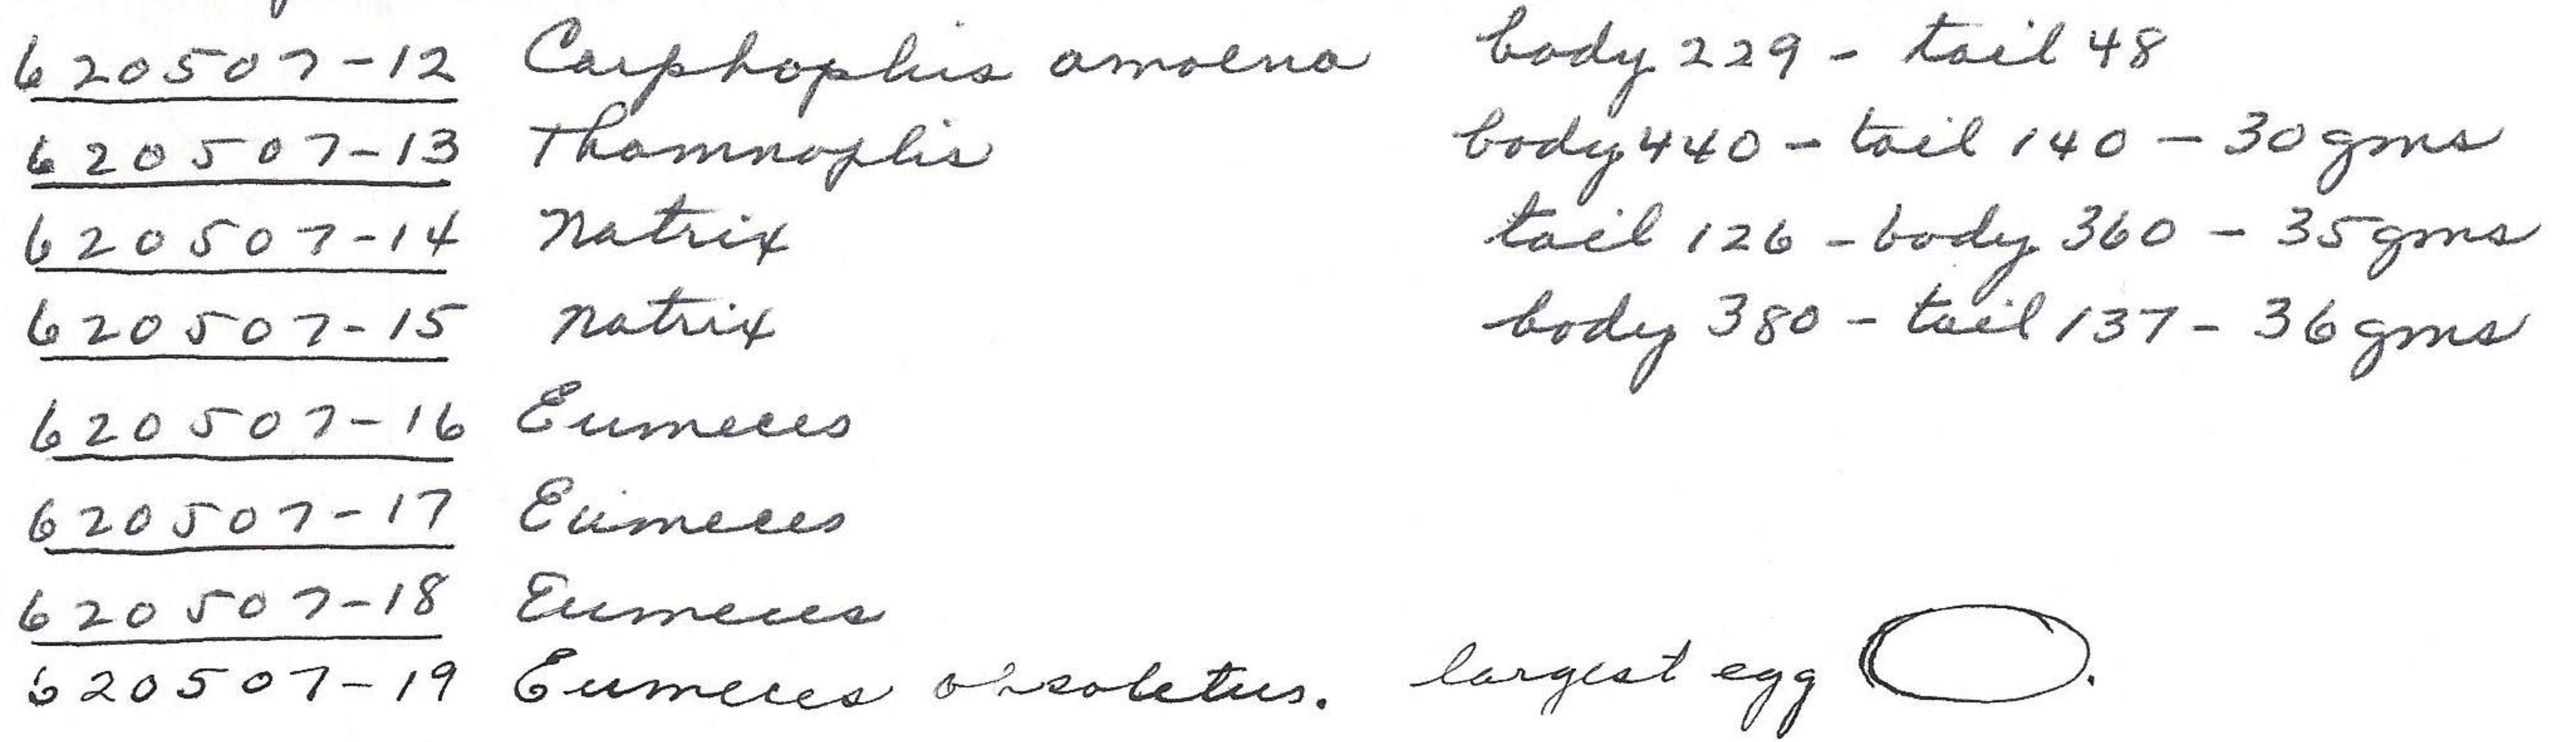 620507-12 Carphophis amoena body 229 - tail 48
620507-13 Thamnophis body 440 - tail 140 - 30 gms
620507-14 Natrix tail 126 - body 360 - 35 gms
620507-15 Natrix body 380 - tail 137 - 36 gms
620507-16 Eumeces
620507-17 Eumeces
620507-18 Eumeces
620507-19 Eumeces obsoletus. largest egg .